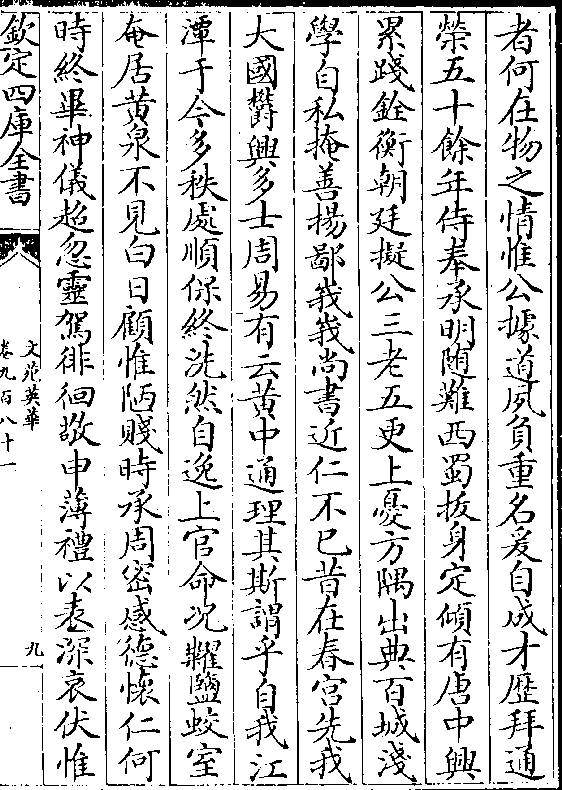 者何在物之情惟公據道夙負重名爰自成才歷拜通
榮五十餘年侍奉承明随難西蜀扳身定傾有唐中興
累踐銓衡朝廷擬公三老五更上憂方隅出典百城淺
學自私掩善揚鄙峩峩尚書近仁不已昔在春宫先我
大國欝興多士周易有云黄中通理其斯謂乎自我江
潭于今多秩處順保終洸然自逸上官命况糶鹽蛟室
奄居黄泉不見白日顧惟陋賤時承周密感德懷仁何
時終畢神儀超忽靈駕徘徊敬申薄禮以表深哀伏惟
欽定四庫全書
文苑英華
卷九百八十一
九